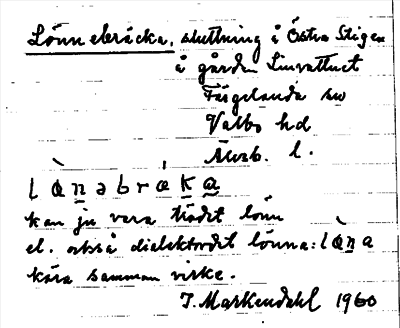 Lönnebräcka, sluttning i Östra Stigen
å gården Livattnet
Färgelanda sn
Valbo hd
Älvsb. l.
lȍnəbrákа
kan ju vara trädet lönn
el. också dialektordet lönna: lȍna
köra samman virke.
J. Markendahl 1960